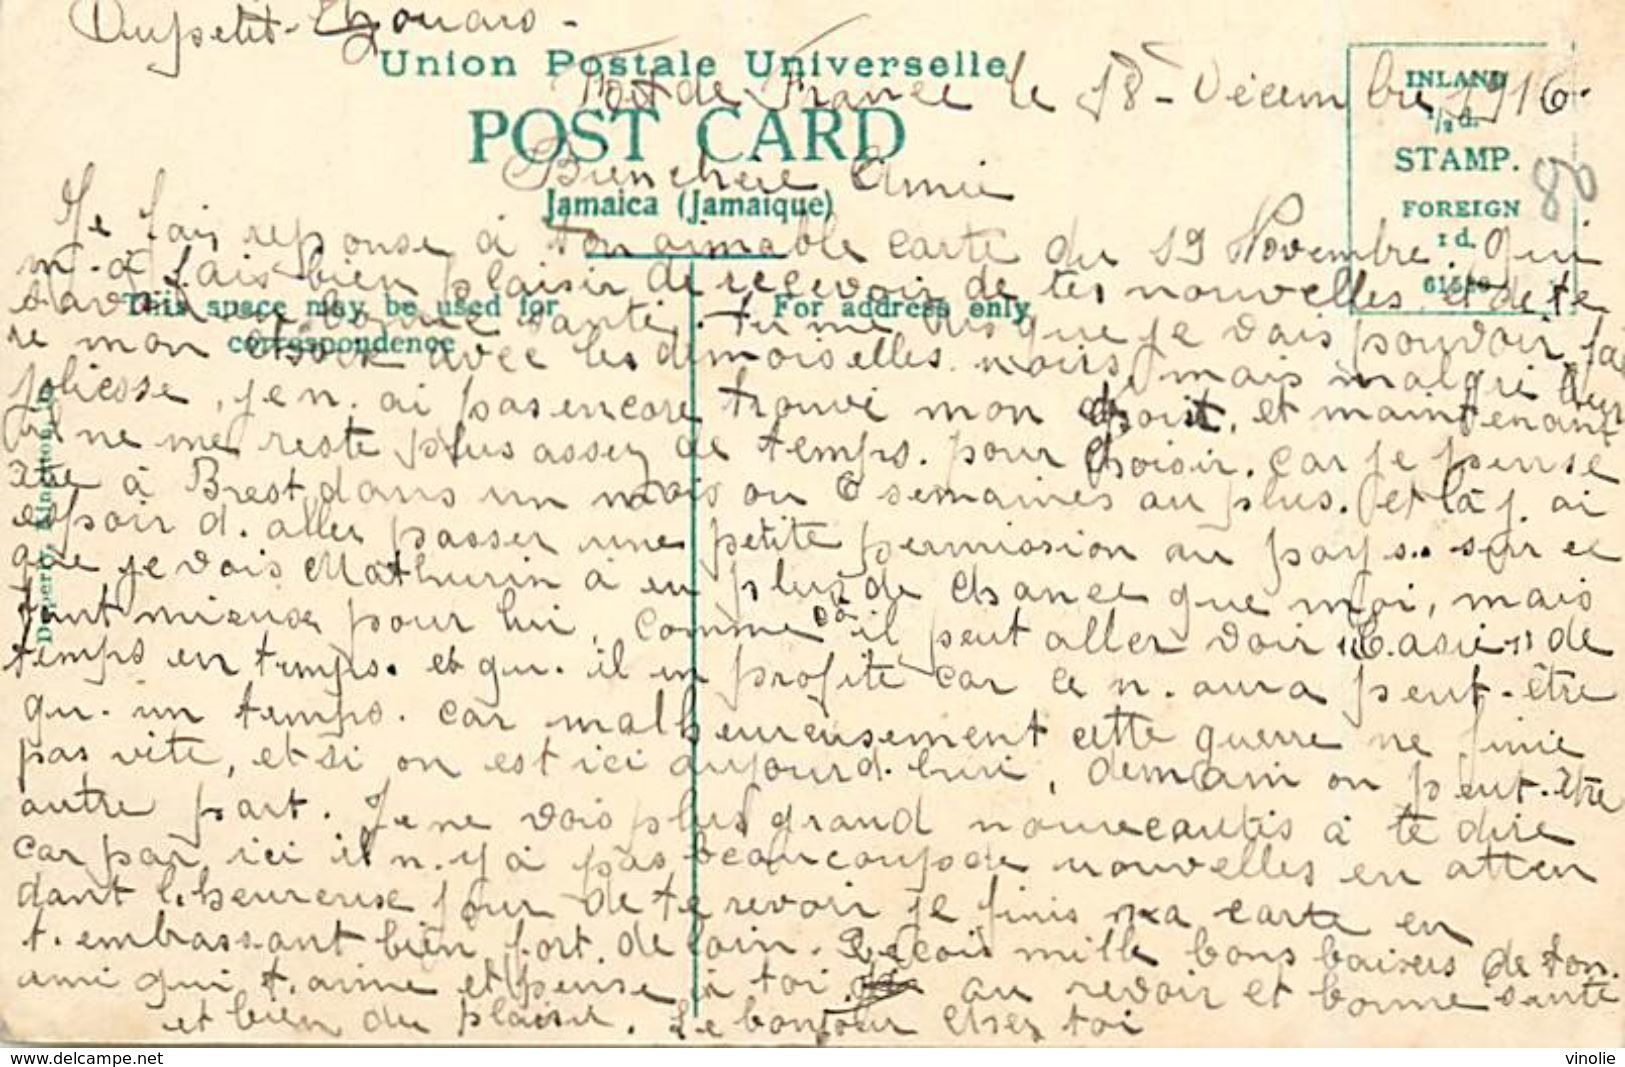 Dupetit-Thouars -
Union Postale Universelle
Fort de France le 18 - Décembre 1916.
INLAND
1/2 d.
STAMP.
FOREIGN
1 d.
80
POST CARD
Bien chere Amie
Jamaica (Jamaique)
Je fais reponse a ton aimable carte du 19 Novembre. qui
m. a fais bien plaisir de recevoir de tes nouvelles, et de te
This space may be used for
correspondence
For address only
savoir en bonne santé. tu me dis que je vais pouvoir fai
re mon choix avec les demoiselles noires, mais malgré leur
joliesse, je n. ai pas encore trouvé mon choix, et maintenant
il ne me reste plus assez de temps. pour choisir. car je pense
etre à Brest dans un mois ou 6 semaines au plus. et là j. ai
espoir d. aller passer une petite permission au pays.. sur ce
que je vois Mathurin a eu plus de chance que moi, mais
tant mieux pour lui, comme ça il peut aller voir "Casie" de
temps en temps. et qu. il en profite car ce n. aura peut-être
qu. un temps. car malheureusement cette guerre ne finie
pas vite, et si on est ici aujourd. hui, demain on peut-etre
autre part. Je ne vois plus grand nouveautés à te dire
car par ici il n. y a pas beaucoup de nouvelles en atten
dant l. heureuse jour de te revoir je finis ma carte en
t. embrassant bien fort. de loin. Reçois mille bons baisers de ton.
ami qui t. aime et pense à toi. au revoir et bonne santé
et bien du plaisir. Le bonjour chez toi
www.delcampe.net
vinolie